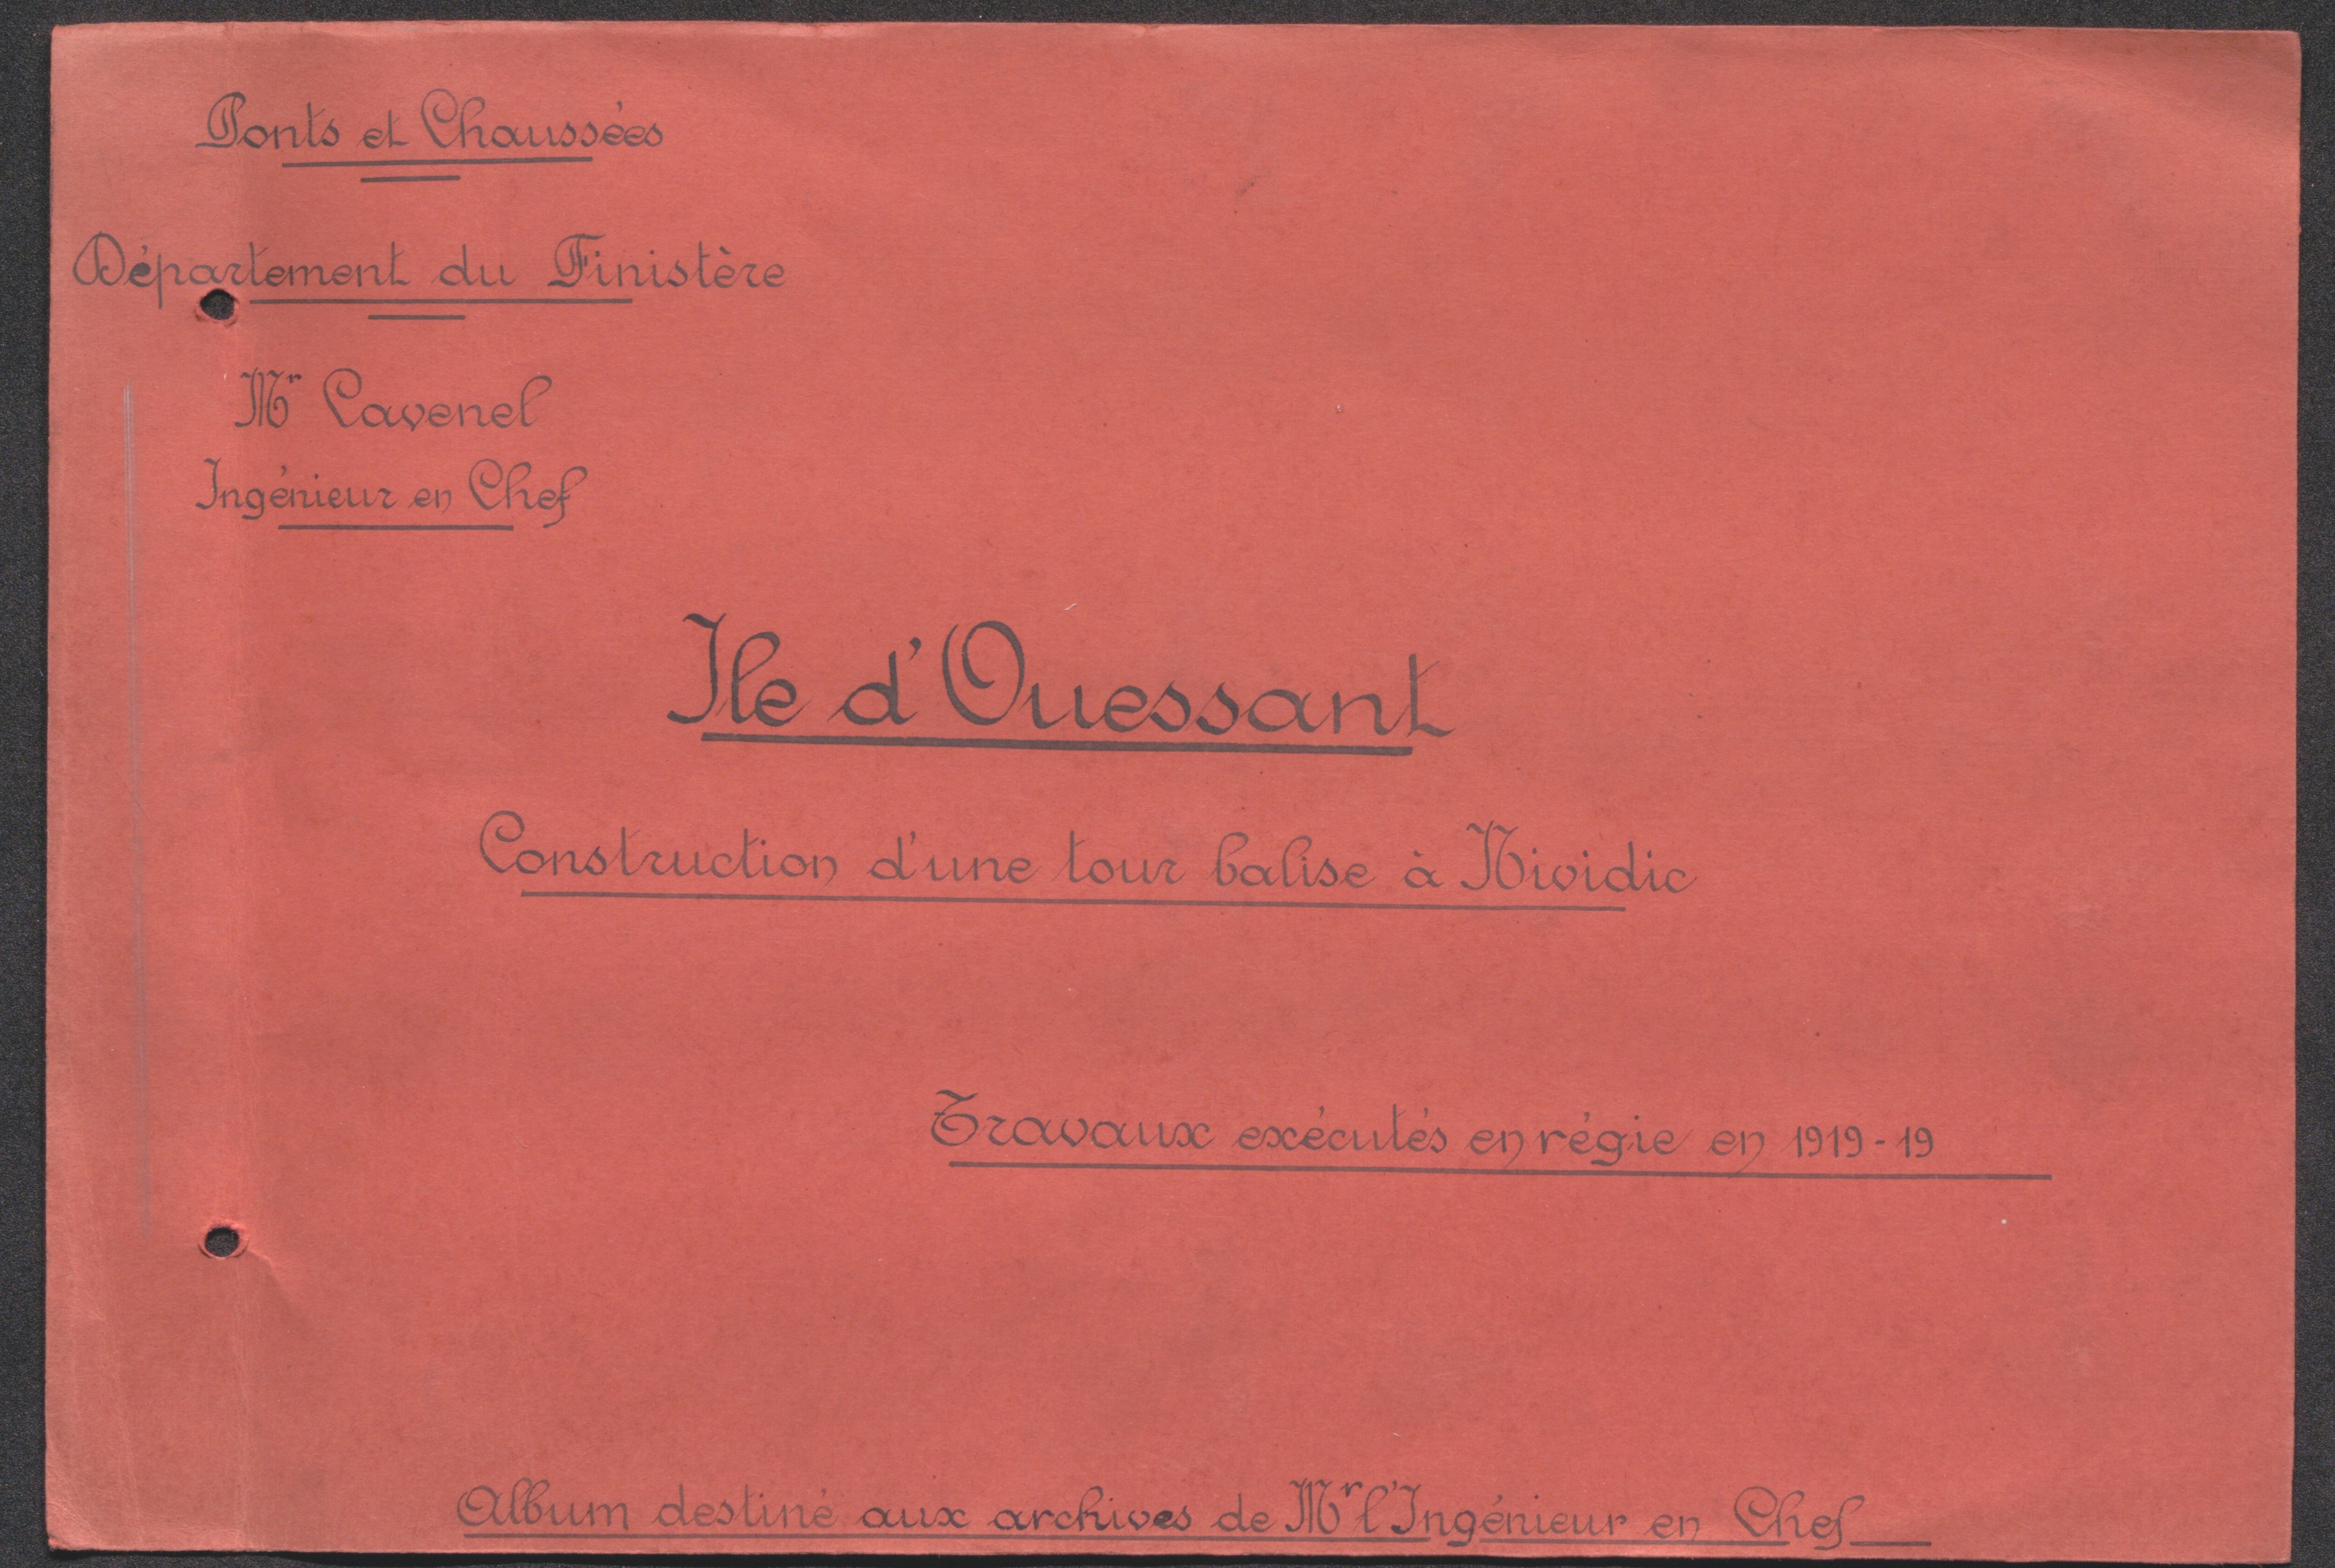 Ponts et Chaussées
Département du Finistère
Mr Cavenel
Ingénieur en Chef
Ile d'Ouessant
Construction d'une tour balise à Nividic
Travaux exécutés en régie en 1919-19
Album destiné aux archives de Mr l'Ingénieur en Chef